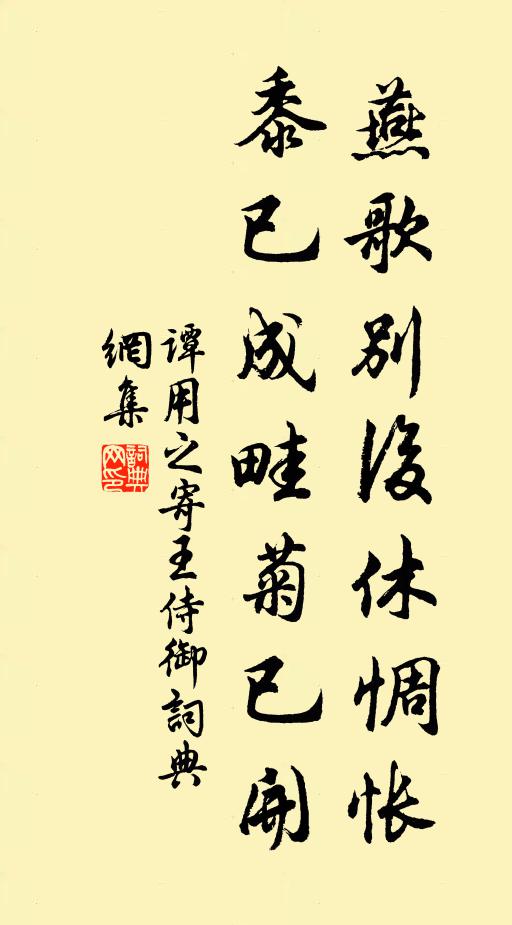 燕歌别後休惆怅
黍已成畦菊已開
谭用之寄王侍御詞典
網集
詞典网印